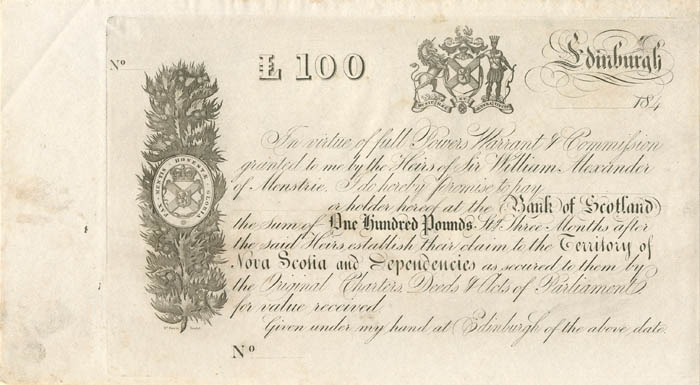 No
£ 100
Edinburgh
184
In virtue of full Powers Warrant & Commission
granted to me by the Heirs of Sir William Alexander
of Menstrie. I do hereby promise to pay
or holder hereof at the Bank of Scotland
the sum of One Hundred Pounds Stg Three Months after
the said Heirs establish their claim to the Territory of
Nova Scotia and Dependencies as secured to them by
the Original Charters, Deeds & Acts of Parliament
for value received.
Given under my hand at Edinburgh of the above date.
No